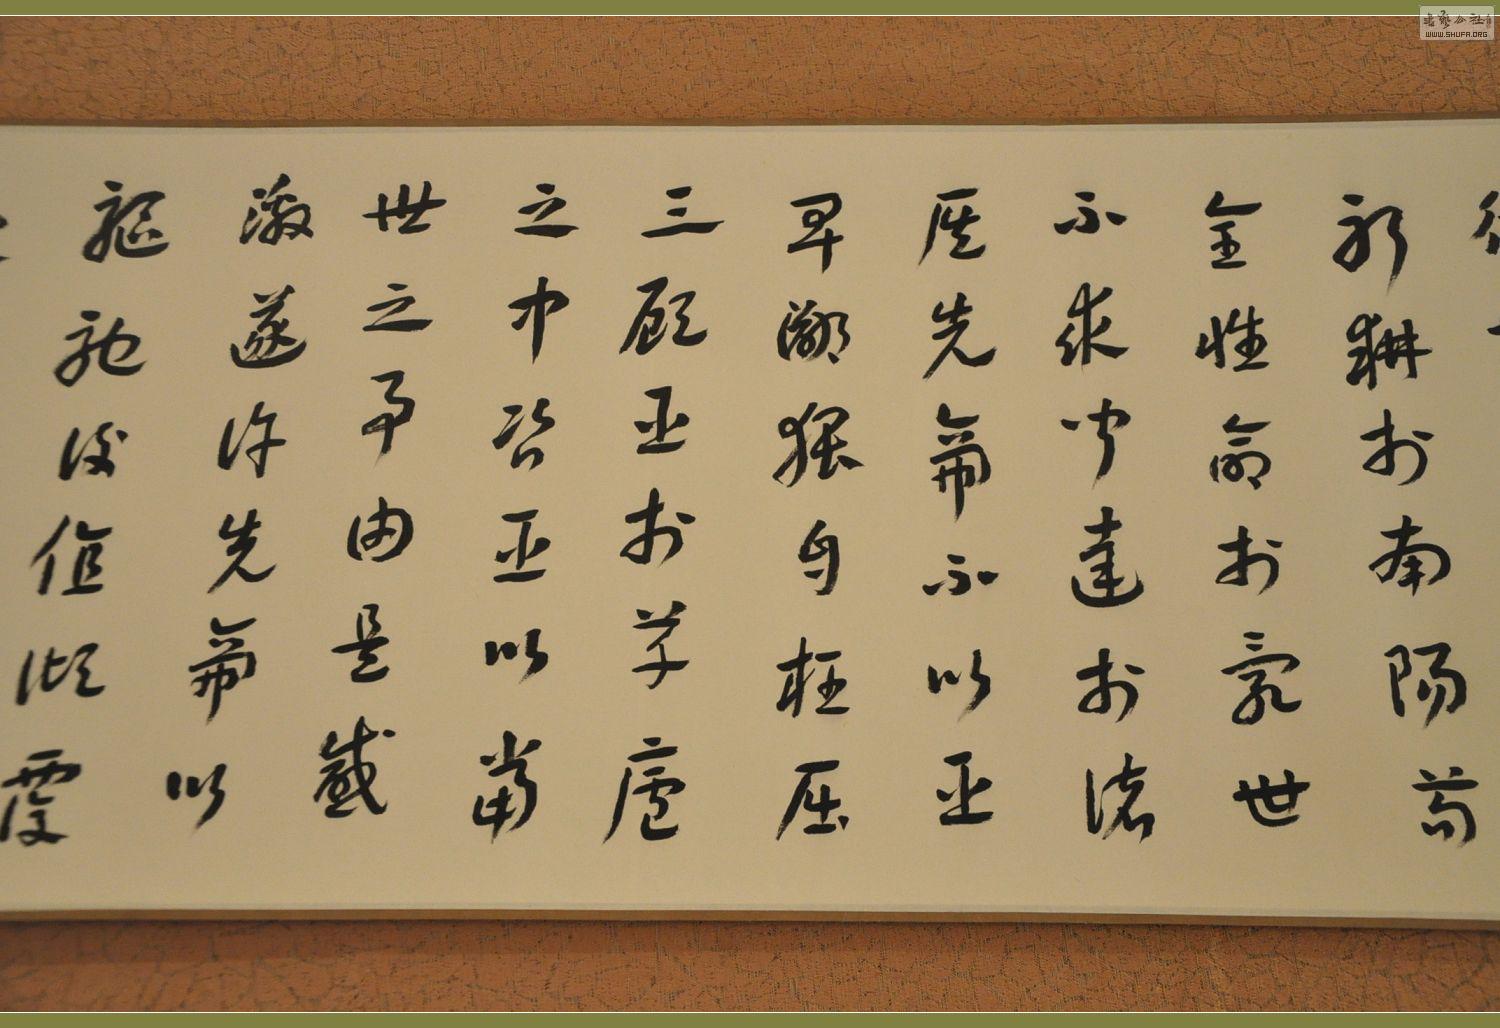 躬耕於南陽苟
全性命於亂世
不求聞達於諸
侯先帝不以臣
卑鄙猥自枉屈
三顧臣於草廬
之中咨臣以當
世之事由是感
激遂許先帝以
驅馳後值傾覆
WWW.SHUFA.ORG